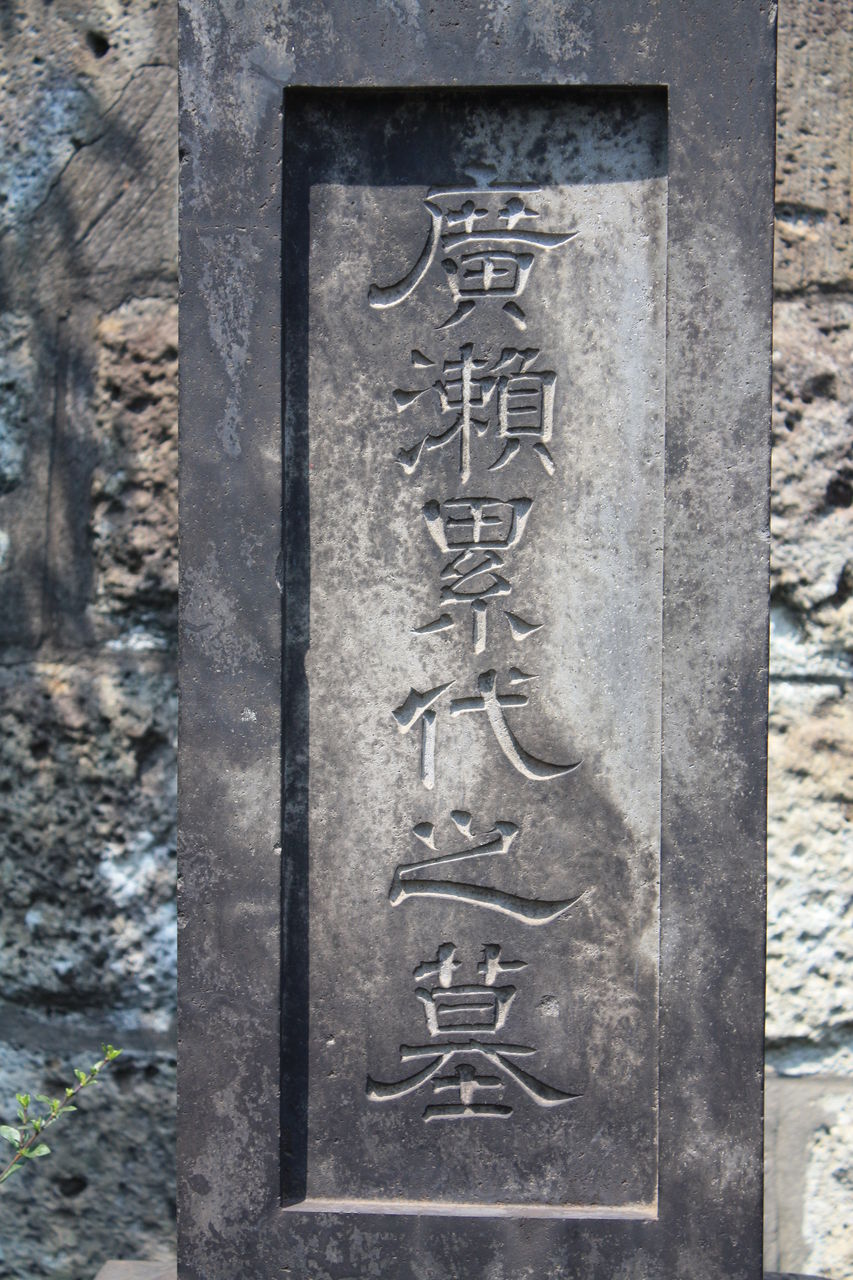 廣瀨累代之墓